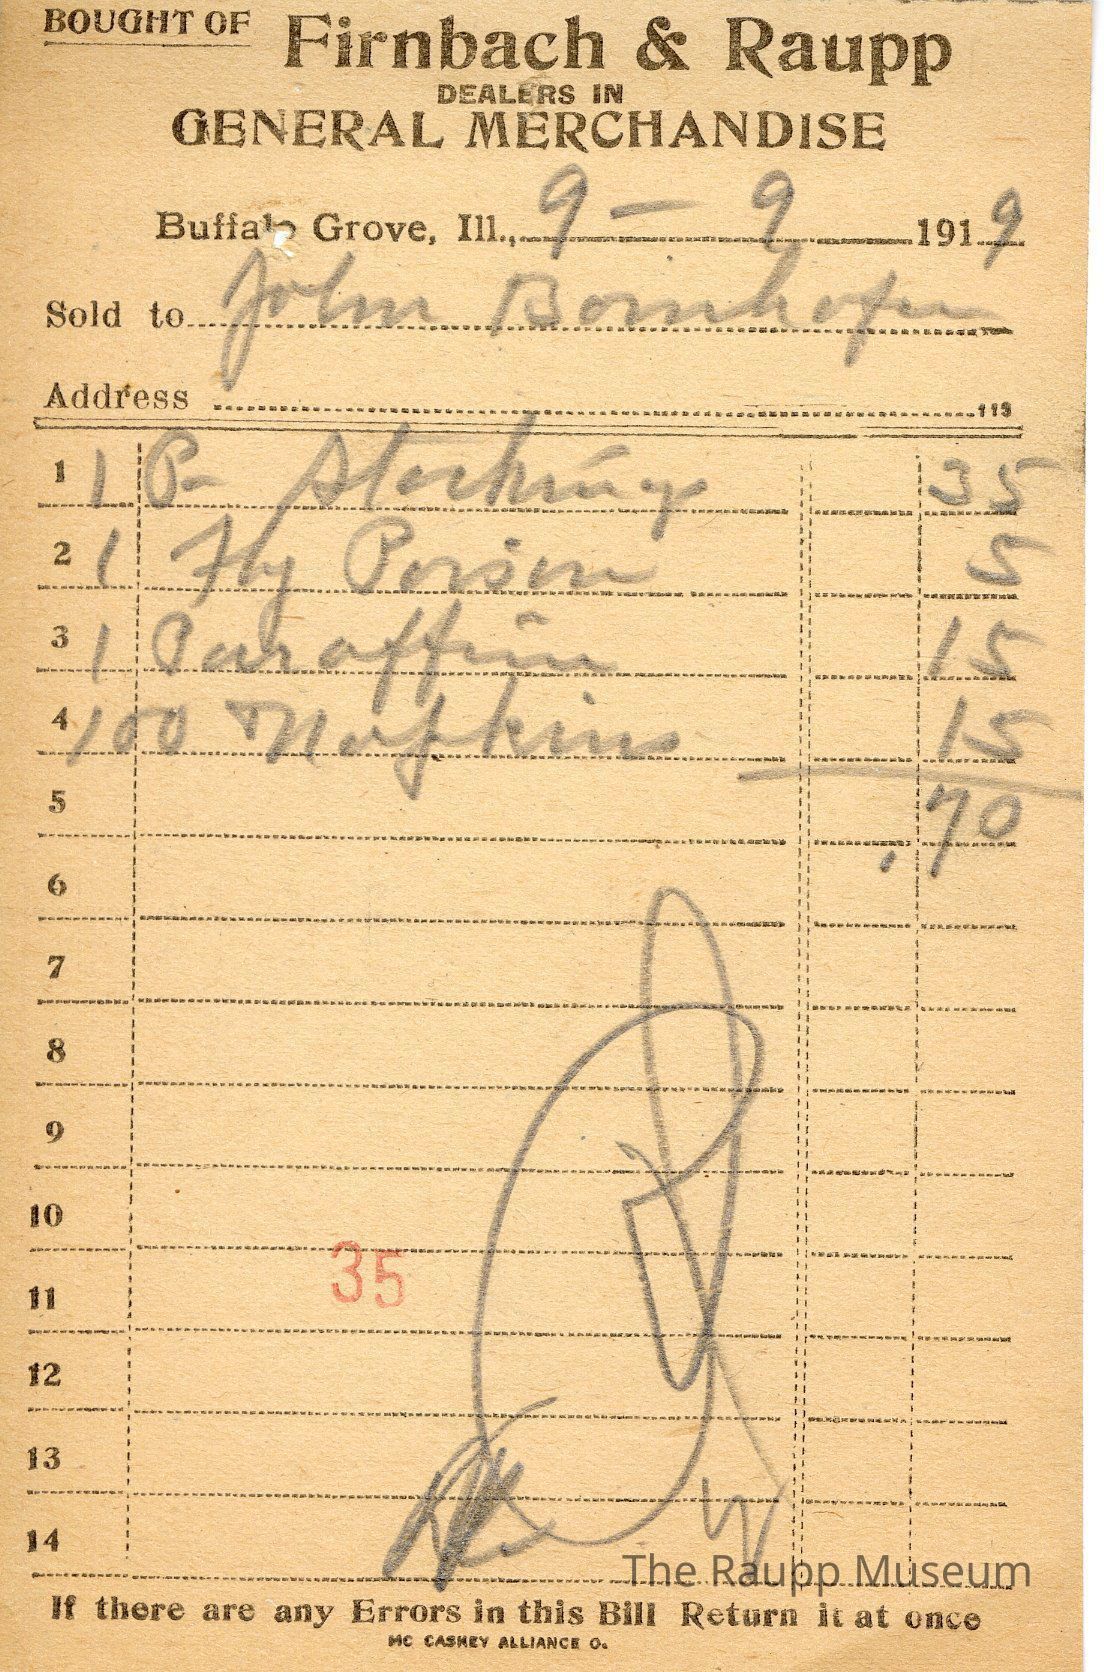 BOUGHT OF Firnbach & Raupp
DEALERS IN
GENERAL MERCHANDISE
Buffalo Grove, Ill., 9 - 9 1919
Sold to John Bornhofen
Address 113
1 1 P- Stockings 35
2 1 Fly Poison 5
3 1 Paraffine 15
4 100 Napkins 15
5 .70
6
7
8
9
10
35
11
12
13
14
The Raupp Museum
If there are any Errors in this Bill Return it at once
MC CASKEY ALLIANCE O.